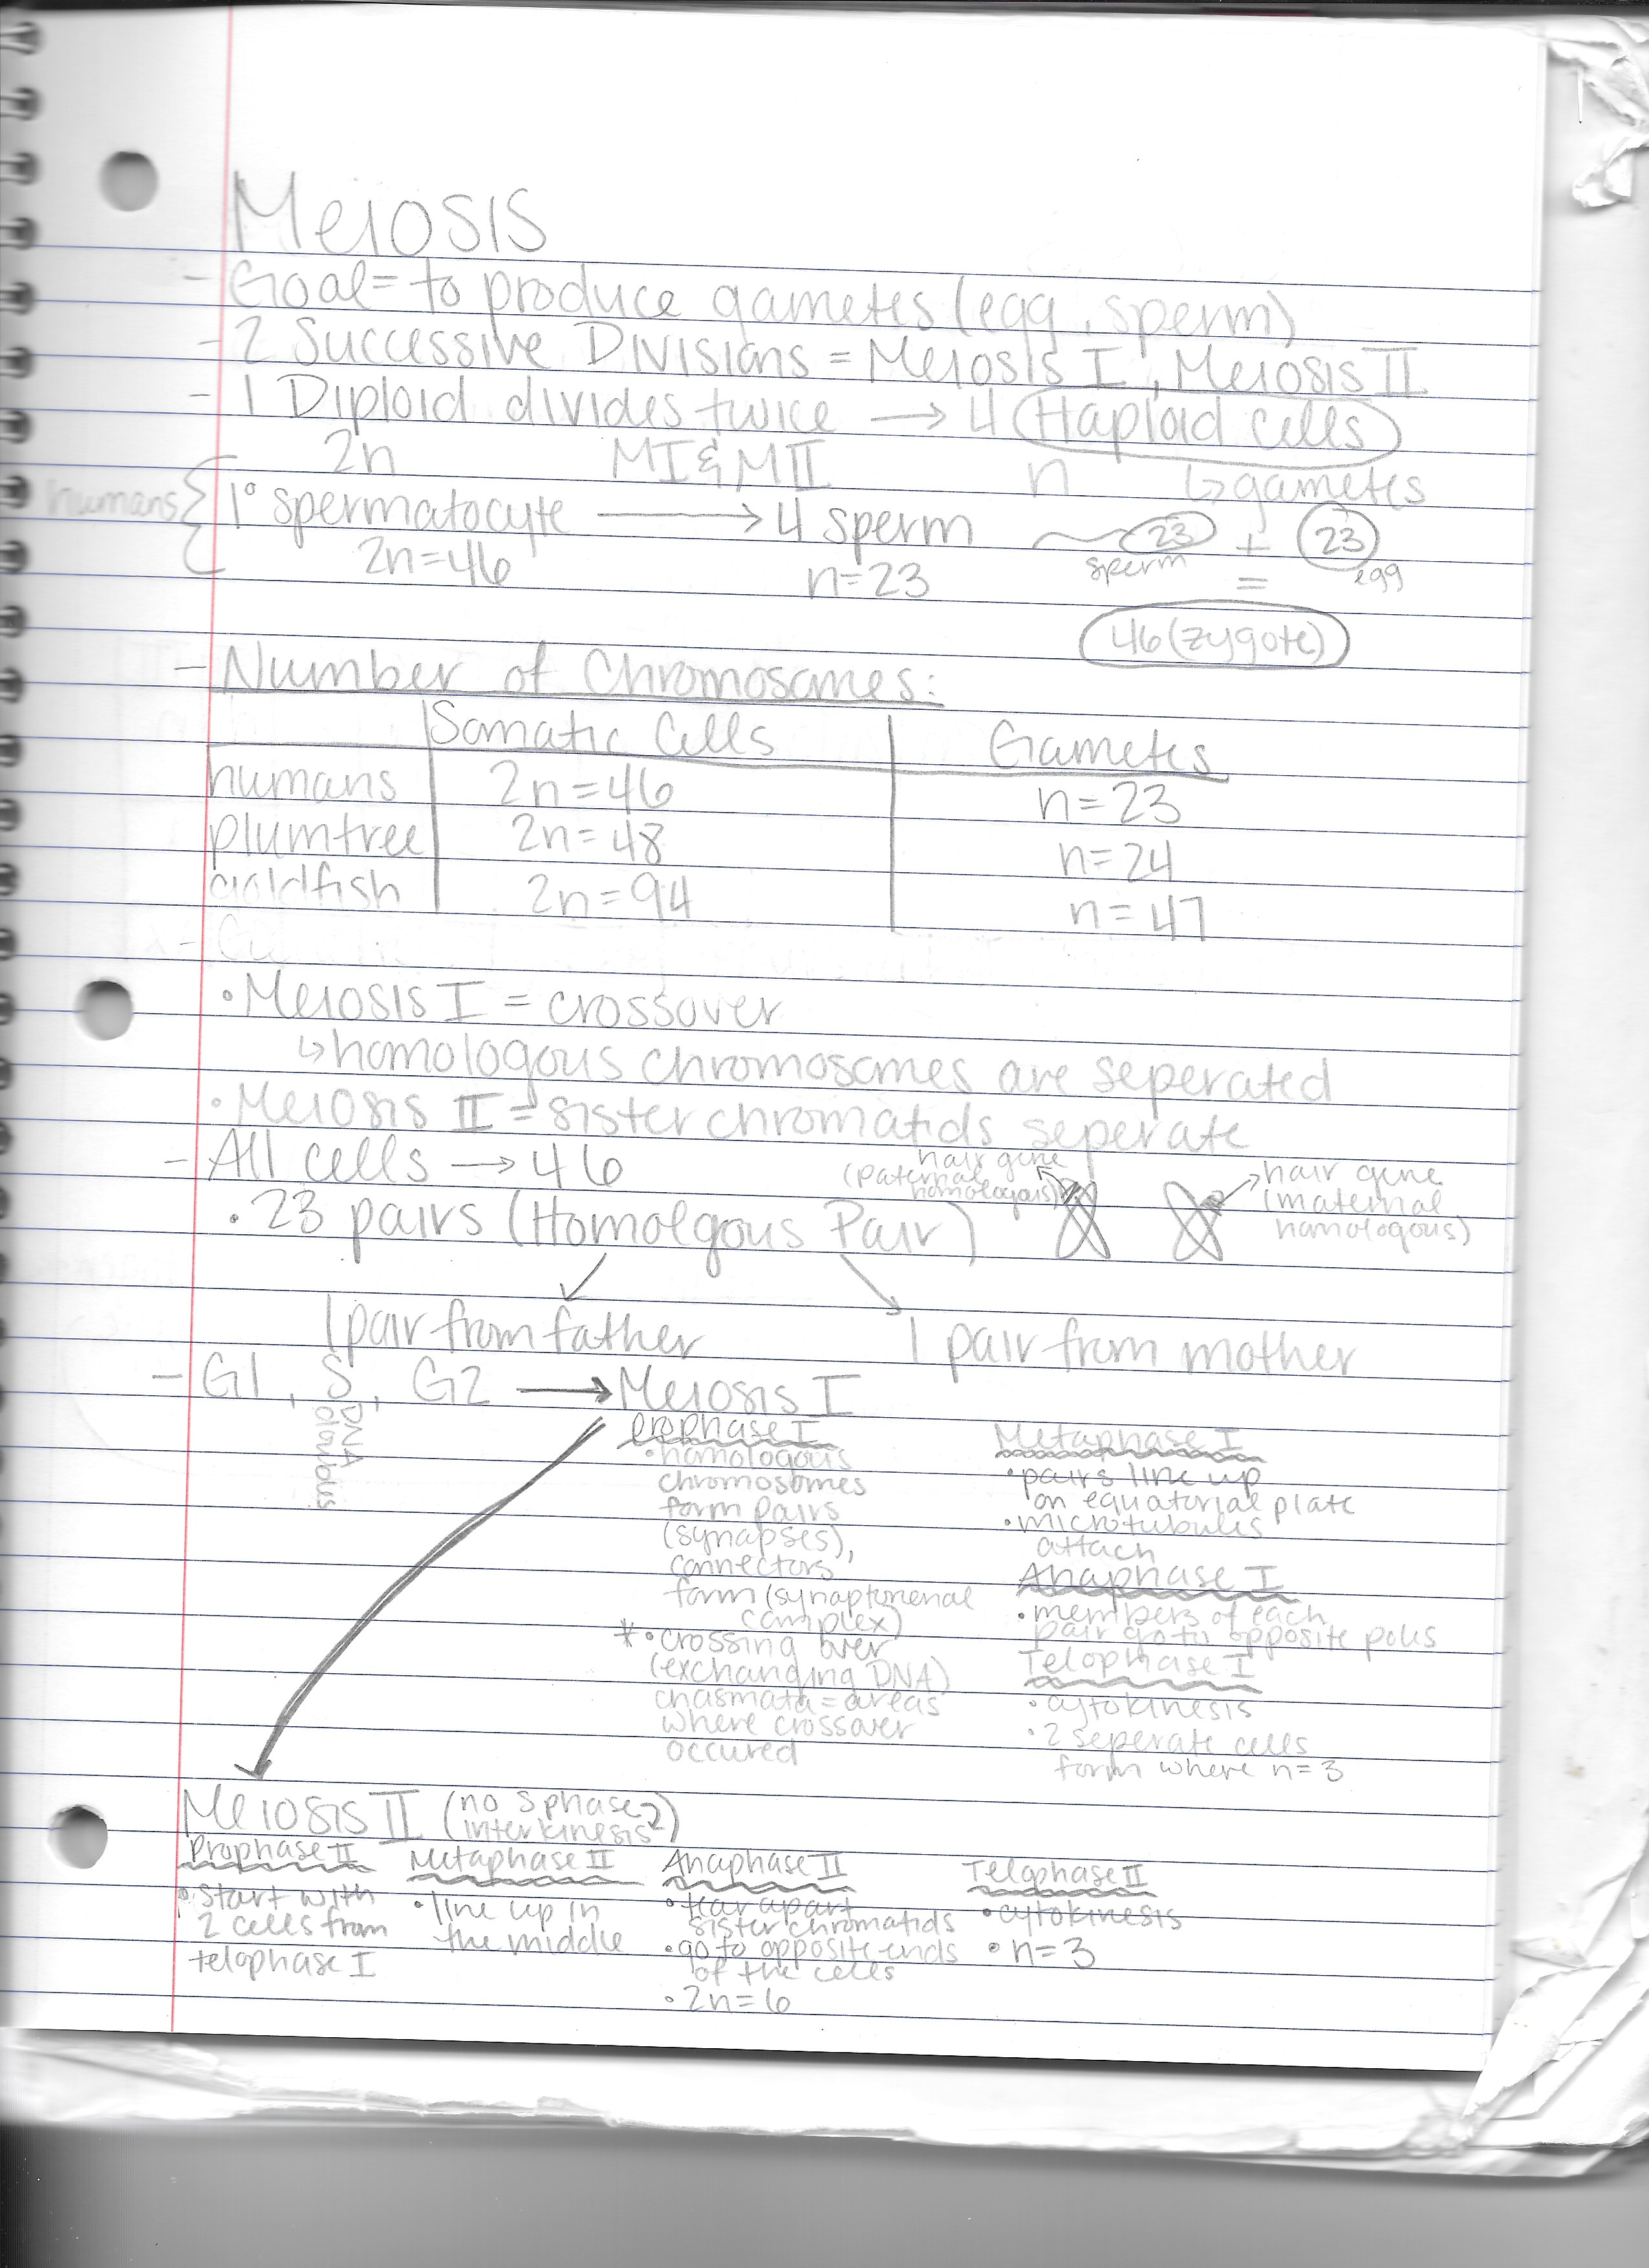 Meiosis
- Goal = to produce gametes (egg, sperm)
- 2 Successive Divisions = Meiosis I, Meiosis II
- 1 Diploid divides twice → 4 Haploid cells
2n MI & MII n ↳ gametes
humans { 1° spermatocyte → 4 sperm 23 + 23
2n=46 n=23 sperm = egg
46 (zygote)
- Number of Chromosomes:
Somatic Cells Gametes
humans 2n=46 n=23
plumtree 2n=48 n=24
goldfish 2n=94 n=47
• Meiosis I = crossover
↳ homologous chromosomes are seperated
• Meiosis II = sister chromatids seperate
- All cells → 46
hair gene
(paternal
homologous)
hair gene
(maternal
homologous)
• 23 pairs (Homolgous Pair)
1 pair from father 1 pair from mother
- G1, S, G2 → Meiosis I
DNA
doubles
Prophase I
• homologous
chromosomes
form pairs
(synapses),
connectors
form (synaptonenal
complex)
* • crossing over
(exchanging DNA)
chasmata = areas
where crossover
occured
Metaphase I
• pairs line up
on equatorial plate
• microtubules
attach
Anaphase I
• members of each
pair go to opposite poles
Telophase I
• cytokinesis
• 2 seperate cells
form where n=3
Meiosis II (no S phase,
interkinesis)
Prophase II
• start with
2 cells from
telophase I
Metaphase II
• line up in
the middle
Anaphase II
• tear apart
sister chromatids
• go to opposite ends
of the cells
• 2n=6
Telophase II
• cytokinesis
• n=3